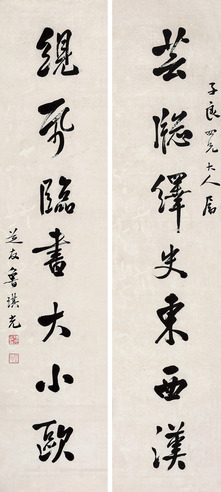 芸牕繹史東西漢
子良四兄大人屬
緄几臨書大小歐
並友魯琪光